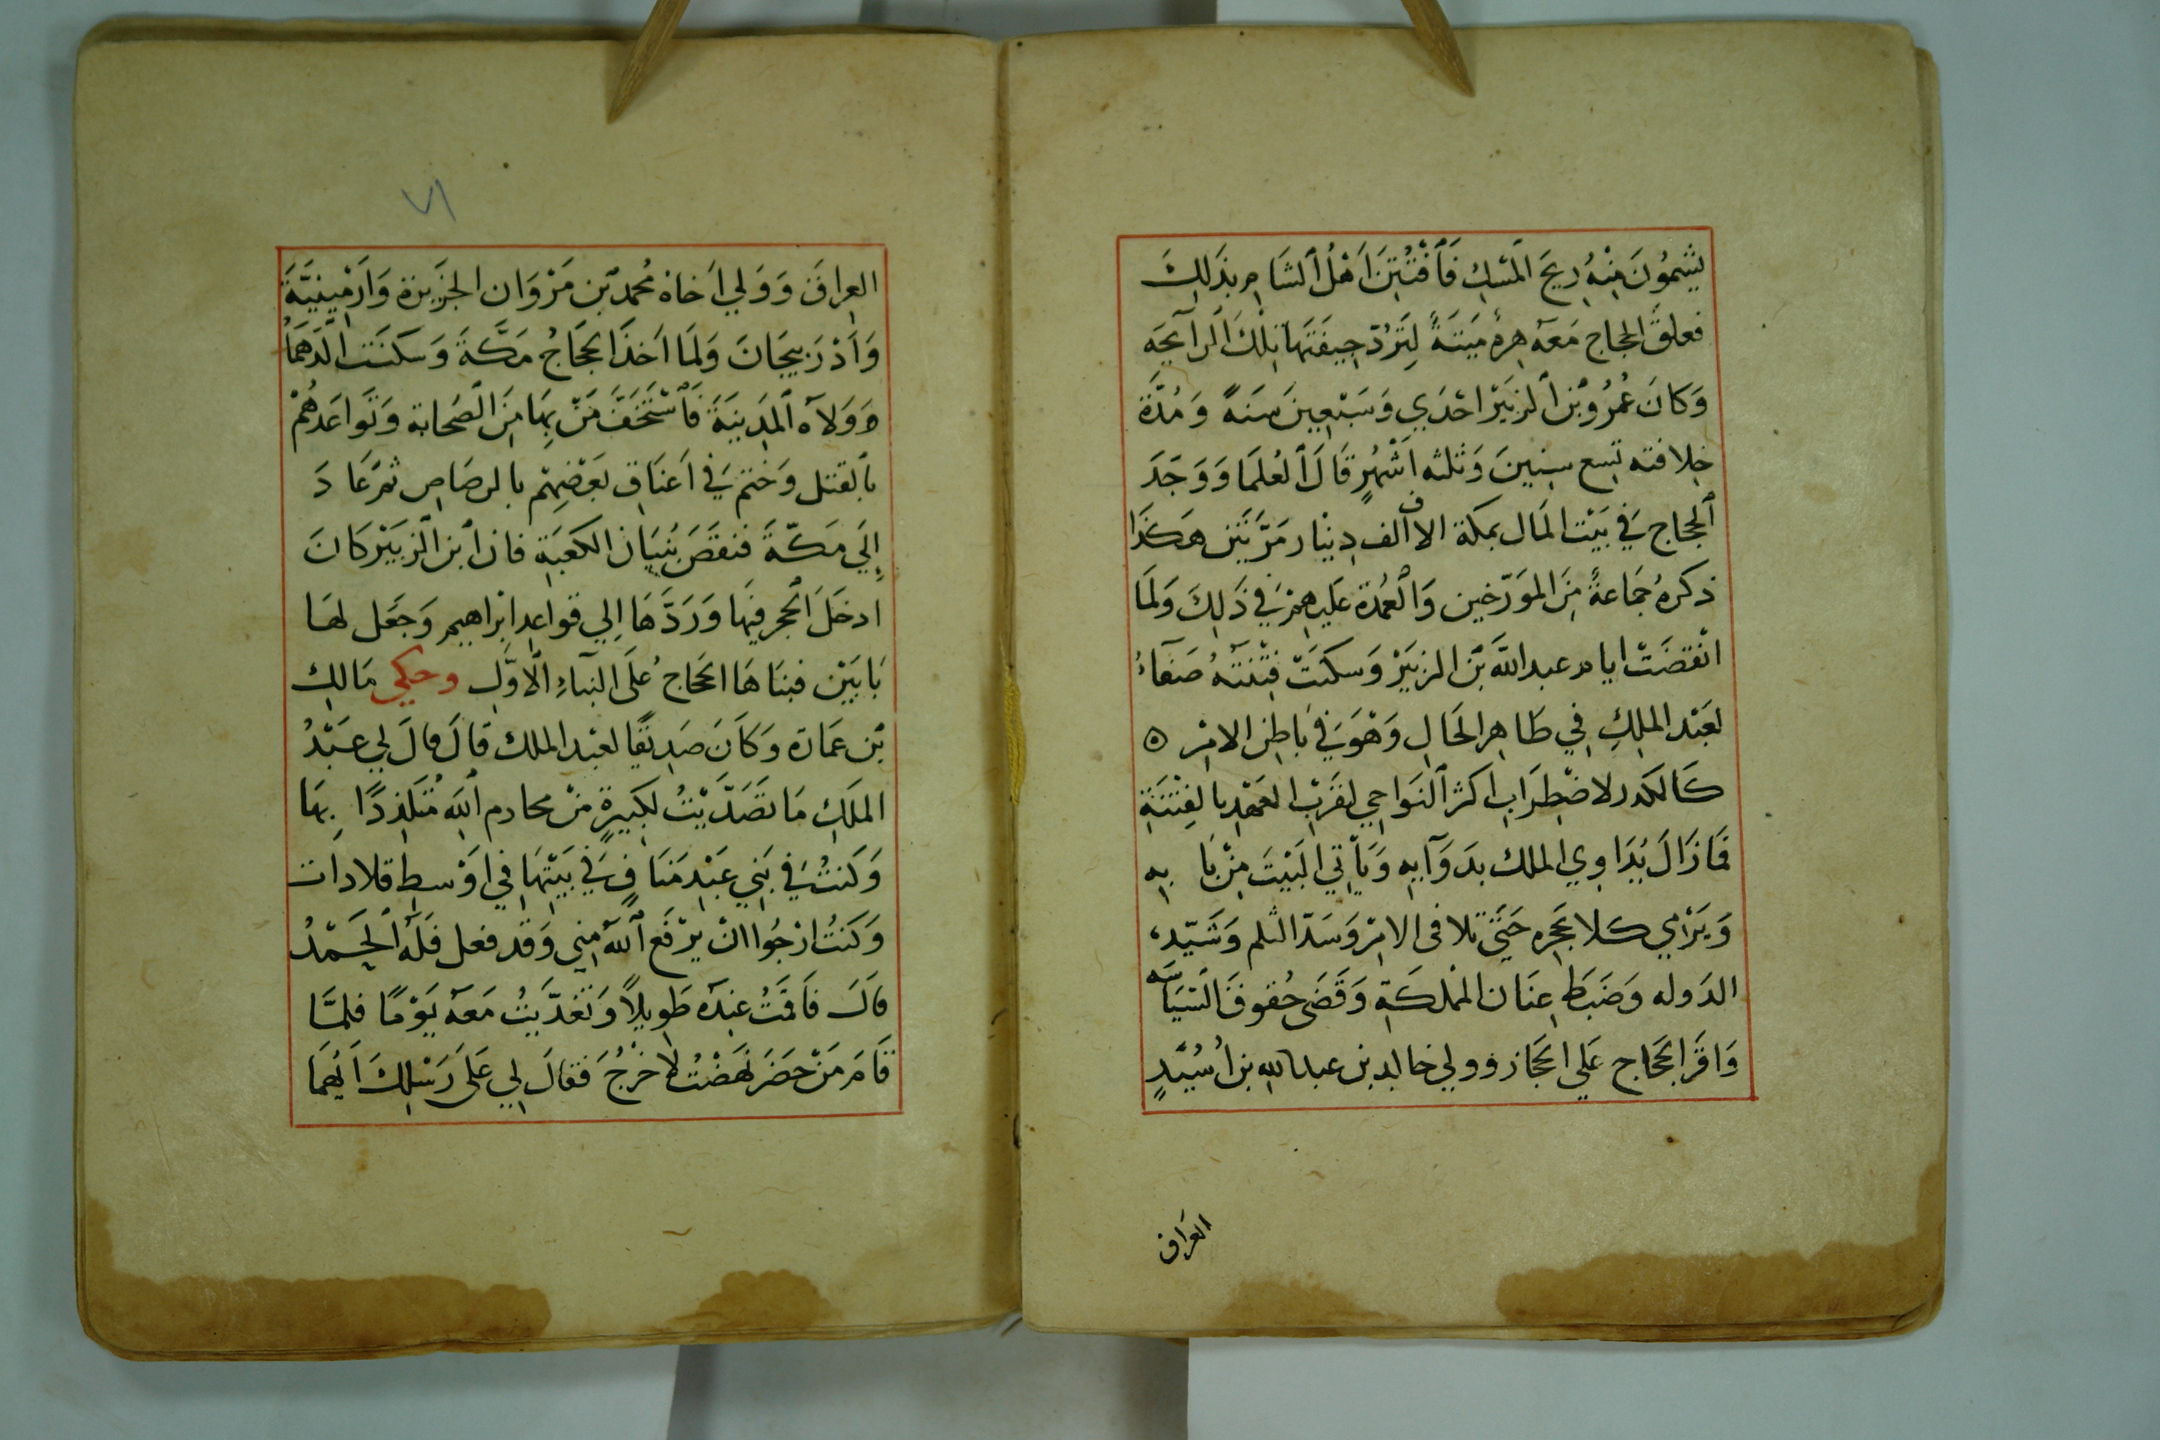 يشمون منه ريح المسك فافتتن اهل الشام بذلك
فعلق الحجاج معه هره ميتة لترد جيفتها تلك الرآيحه
وكان عمر وبن الزبير احدي وسبعين سنة ومدة
خلافته تسع سنين وثلثه اشهر قال العلما ووجد
الحجاج في بيت المال بمكة الاف الف دينار مرتين هكذا
ذكره جماعة من المورخين والعمدة عليهم في ذلك ولما
انقضت ايام عبد الله بن الزبير وسكنت فتنته صفآء
لعبد الملك في ظاهر الحال وهو في باطن الامر ه
كالكدر لاضطراب اكثر النواحي لقرب العهد بالفتنة
فمازال يداوي الملك بدوآيه وياتي البيت من با به
ويرمي كلا بحجره حتى تلافى الامر وسد الثلم وشيد
الدوله وضبط عنان المملكة وقضى حقوق السياسه
واقر الحجاج علي الحجاز وولي خالد بن عبد الله بن اُسُيَّد
العراق
٧١
العراق وولي اخاه محمد بن مروان الجزيرة وارمينيَّة
وادربيجان ولما اخذ الحجاج مكة وسكنت الدهما
وولاه المدينة فاستخف من بها من الصحابة وتواعدهم
بالقتل وختم في اعناق بعضهم بالرصاص ثم عا د
الي مكة فنقض بنيان الكعبة فان ابن الزبير كان
ادخل الحجر فيها وردها الي قواعد ابراهيم وجعل لها
بابين فبناها الحجاج على البناء الاول وحكي مالك
بن عمارة وكان صديقا لعبد الملك قال قال لي عبد
الملك ما تصديت لكبيرة من محارم الله متلذذا بها
وكنت في بني عبد مناف في بيتها في اوسط قلادات
وكنت ارجوا ان يرفع الله مني وقد فعل فله الحمد
قال فاقمت عنده طويلا وتغديت معه يوما فلما
قام من حضر نهضت لاخرج فقال لي على رسلك ايهما